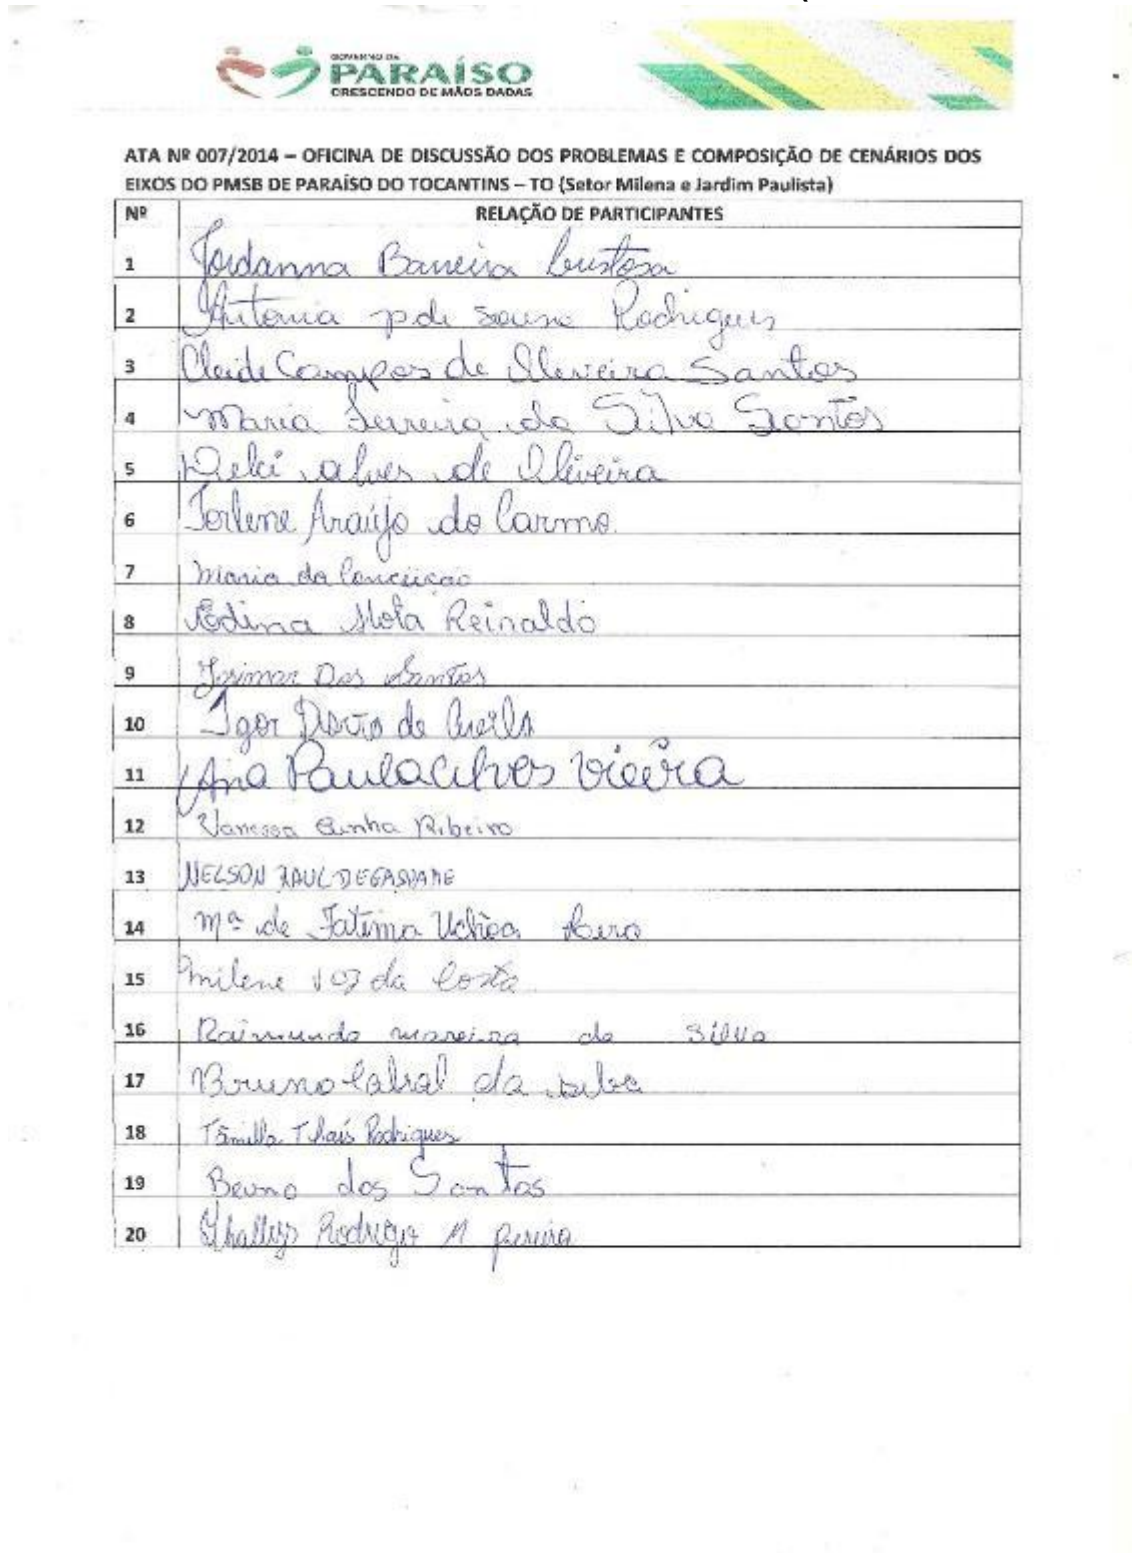 GOVERNO DE
PARAÍSO
CRESCENDO DE MÃOS DADAS
ATA Nº 007/2014 – OFICINA DE DISCUSSÃO DOS PROBLEMAS E COMPOSIÇÃO DE CENÁRIOS DOS
EIXOS DO PMSB DE PARAÍSO DO TOCANTINS – TO (Setor Milena e Jardim Paulista)
Nº RELAÇÃO DE PARTICIPANTES
1 Jordanna Barreira Lustosa
2 Antonia p. de Sousa Rodrigues
3 Cleide Campos de Oliveira Santos
4 Maria Ferreira da Silva Santos
5 alves de Oliveira
6 Araújo do Carmo
7 Maria da Conceicao
8 Edina Mota Reinaldo
9 Josimar Dos Santos
10 Igor de
11 Ana Paula alves vieira
12 Vanessa Cunha Ribeiro
13 NELSON RAUL DEGASPARIE
14 Mª de Fatima Uchôa
15 milene da Costa
16 Raimundo moreira da silva
17 Bruno Cabral da silva
18 Tâmilla Thaís Rodrigues
19 Bruno dos Santos
20 Thallys Rodrigo M pereira